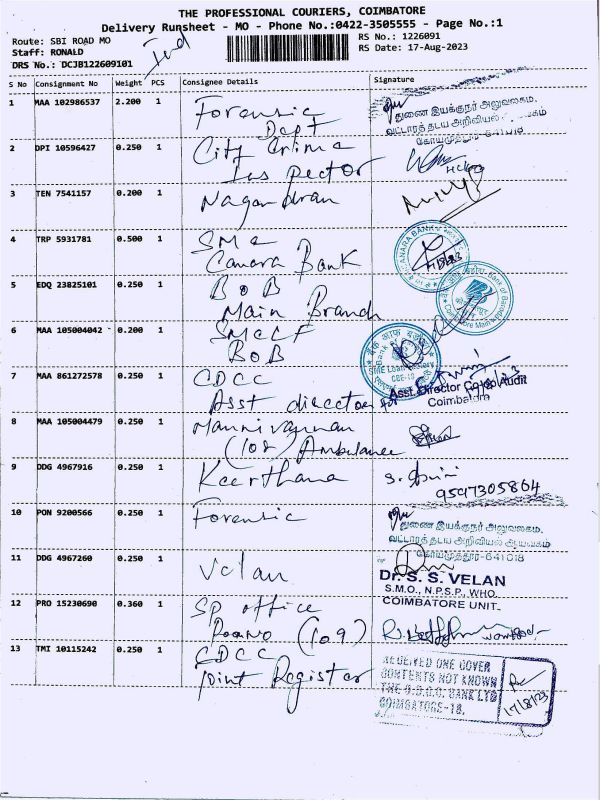 THE PROFESSIONAL COURIERS, COIMBATORE
Delivery Runsheet - MO - Phone No.:0422-3505555 - Page No.:1
Route: SBI ROAD MO
RS No.: 1226091
Staff: RONALD
RS Date: 17-Aug-2023
DRS No.: DCJB122609101
S No Consignment No Weight PCS Consignee Details Signature
1 MAA 102986537 2.200 1 Forensic
Dept
துணை இயக்குநர் அலுவலகம்,
வட்டாரத் தடய அறிவியல்
கோயமுத்தூர்-641018
2 DPI 10596427 0.250 1 City Crime
Inspector
3 TEN 7541157 0.200 1 Nagandran
4 TRP 5931781 0.500 1 SME
Canara Bank
CANARA BANK
5 EDQ 23825101 0.250 1 BOB
Main Branch
6 MAA 105004042 0.200 1 SMECF
BOB
SME Loan Factory
CBE-18
7 MAA 861272578 0.250 1 CDCC
Asst director for
Asst. Director Co-op Audit
Coimbatore
8 MAA 105004479 0.250 1 Mannivannan
(108) Ambulance
9 DDG 4967916 0.250 1 Keerthana
9597305864
10 PON 9200566 0.250 1 Forensic
துணை இயக்குநர் அலுவலகம்,
வட்டாரத் தடய அறிவியல் ஆய்வகம்
கோயமுத்தூர்-641018
11 DDG 4967260 0.250 1 Velan
Dr. S. S. VELAN
S.M.O., N.P.S.P., WHO.
COIMBATORE UNIT.
12 PRO 15230690 0.360 1 SP office
(109)
13 TMI 10115242 0.250 1 CDCC
Joint Register
RECEIVED ONE COVER
CONTENTS NOT KNOWN
THE C.D.C.C. BANK LTD
COIMBATORE-18.
17/8/23